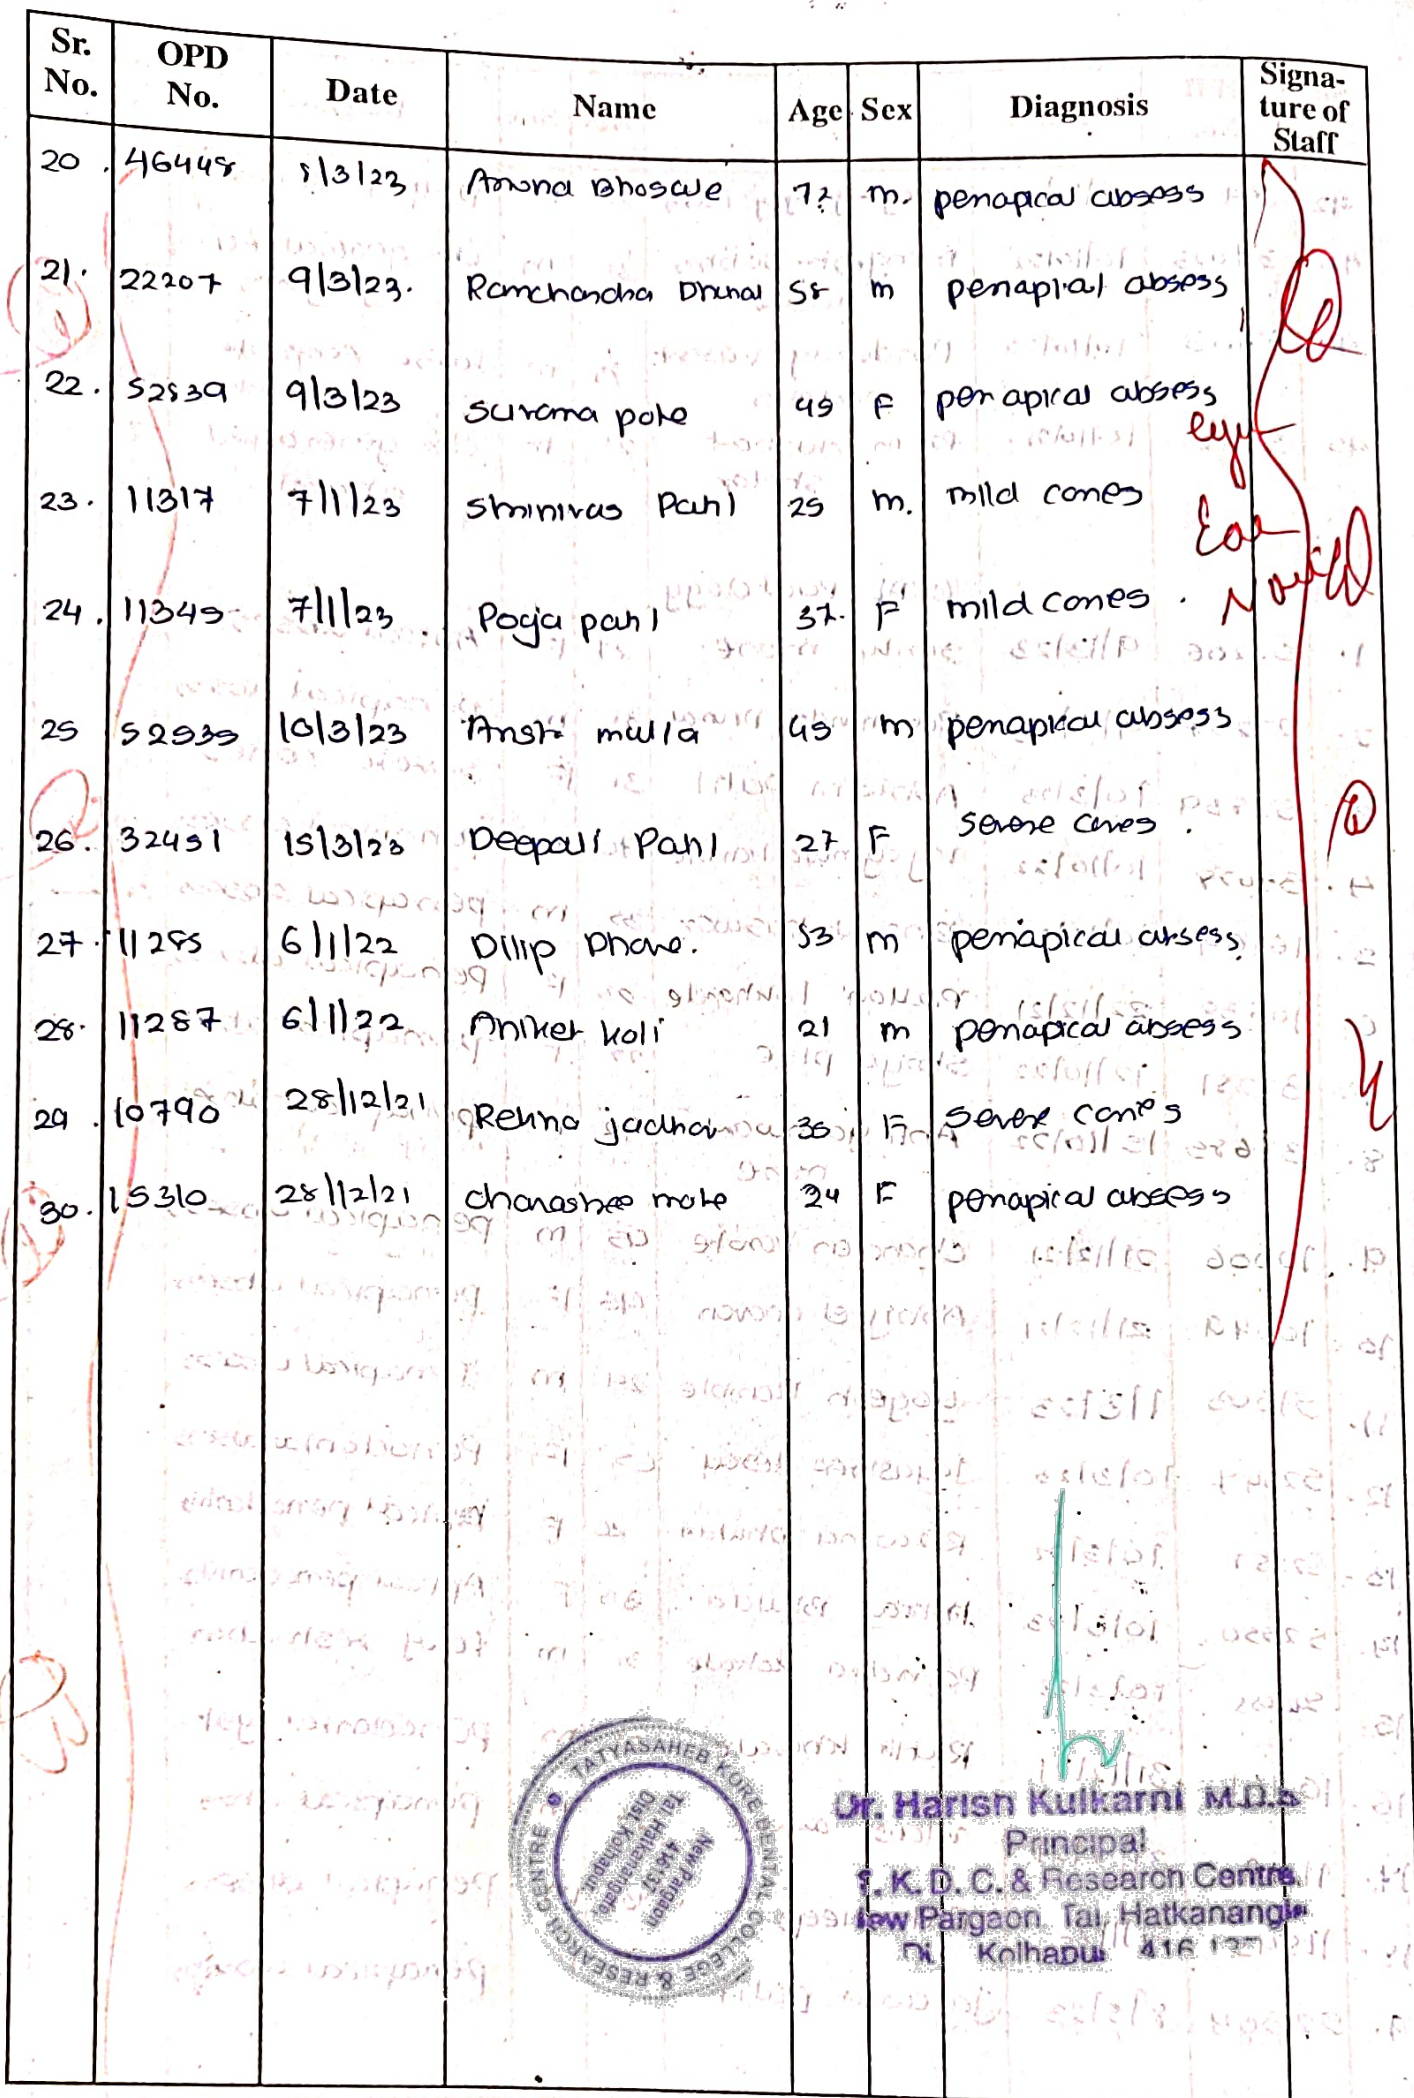 Sr. No. OPD No. Date Name Age Sex Diagnosis Signa-ture of Staff
20. 46448 8/3/23 Aruna Bhosale 72 m. periapical absess
21. 22207 9/3/23. Ramchandra Dhanal 58 m periapical absess
22. 52839 9/3/23 surama pote 49 F periapical absess
23. 11317 7/1/23 Shrinivas Patil 25 m. mild caries
24. 11349 7/1/23 Pooja patil 37. F mild caries.
25 52939 10/3/23 mulla 49 m periapical absess
26. 32491 15/3/23 Deepali Patil 27 F severe caries.
27. 11285 6/1/22 Dilip Dhane. 53 m periapical absess.
28. 11287 6/1/22 Aniket koli 21 m periapical absess
29. 10790 28/12/21 Rekha jadhav 36 F severe caries
30. 15310 28/12/21 mote 24 F periapical absess
TATYASAHEB KORE DENTAL COLLEGE & RESEARCH CENTRE
New Pargaon
416 137
Tal. Hatkanangale,
Dist. Kolhapur.
Dr. Harish Kulkarni M.D.S
Principal
T. K. D. C. & Research Centre
New Pargaon Tal. Hatkanangle
Di Kolhapur 416 137